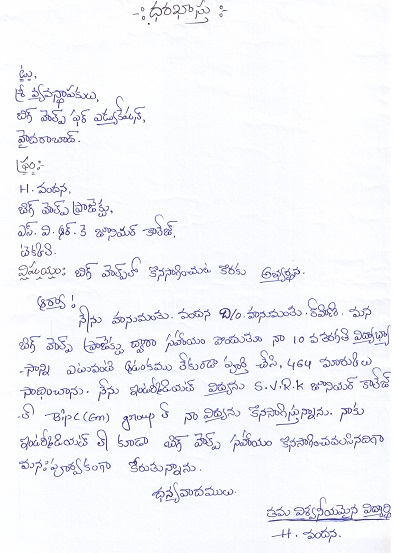 -: ధరఖాస్తు :-
టు,
శ్రీ వ్యవస్థాపకులు,
బిగ్ హెల్ప్ ఫర్ ఎడ్యుకేషన్,
హైదరాబాద్.
ఫ్రం:-
H. వందన,
బిగ్ హెల్ప్ ప్రాజెక్టు,
ఎస్. వి. ఆర్. కె జూనియర్ కాలేజ్,
టెక్కలి.
విషయం: బిగ్ హెల్ప్ లో కొనసాగించుట కొరకు అభ్యర్థన.
ఆర్యా!
నేను హనుమంతు. వందన D/o. హనుమంతు. రమేష్. మన
బిగ్ హెల్ప్ ప్రాజెక్టు ద్వారా సహాయం పొందుతూ నా 10 వ తరగతి విద్యాభ్యా
-సాన్ని ఎటువంటి ఆటంకము లేకుండా పూర్తి చేసి, 464 మార్కులు
సాధించాను. నేను ఇంటర్మీడియట్ విద్యను S.V.R.K జూనియర్ కాలేజ్
లో BiPC (Em) group లో నా విద్యను కొనసాగిస్తున్నాను. నాకు
ఇంటర్మీడియట్ లో కూడా బిగ్ హెల్ప్ సహాయం కొనసాగించవలసినదిగా
మనఃపూర్వకంగా కోరుతున్నాను.
ధన్యవాదములు.
తమ విశ్వసనీయమైన విద్యార్థి
H. వందన.